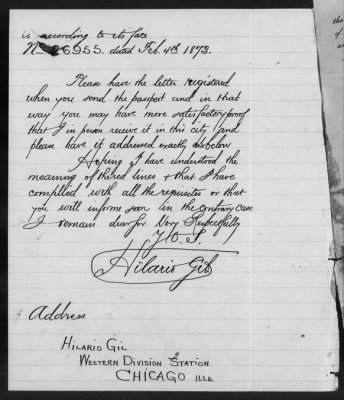 is according to its face
No 26955. dated Feb. 4th 1873.
Please have the letter registered
when you send the passport and in that
way you may have more satisfactory proof
that I in person receive it in this city, and
please have it addressed exactly as below
Hoping I have understood the
meaning of the red lines & that I have
complied with all the requisites or that
you will inform soon in the contrary case
I remain dear Sir Very Respectfully
Y. O. S.
Hilario Gil
Address
HILARIO GIL
WESTERN DIVISION STATION
CHICAGO ILLS.
the
of